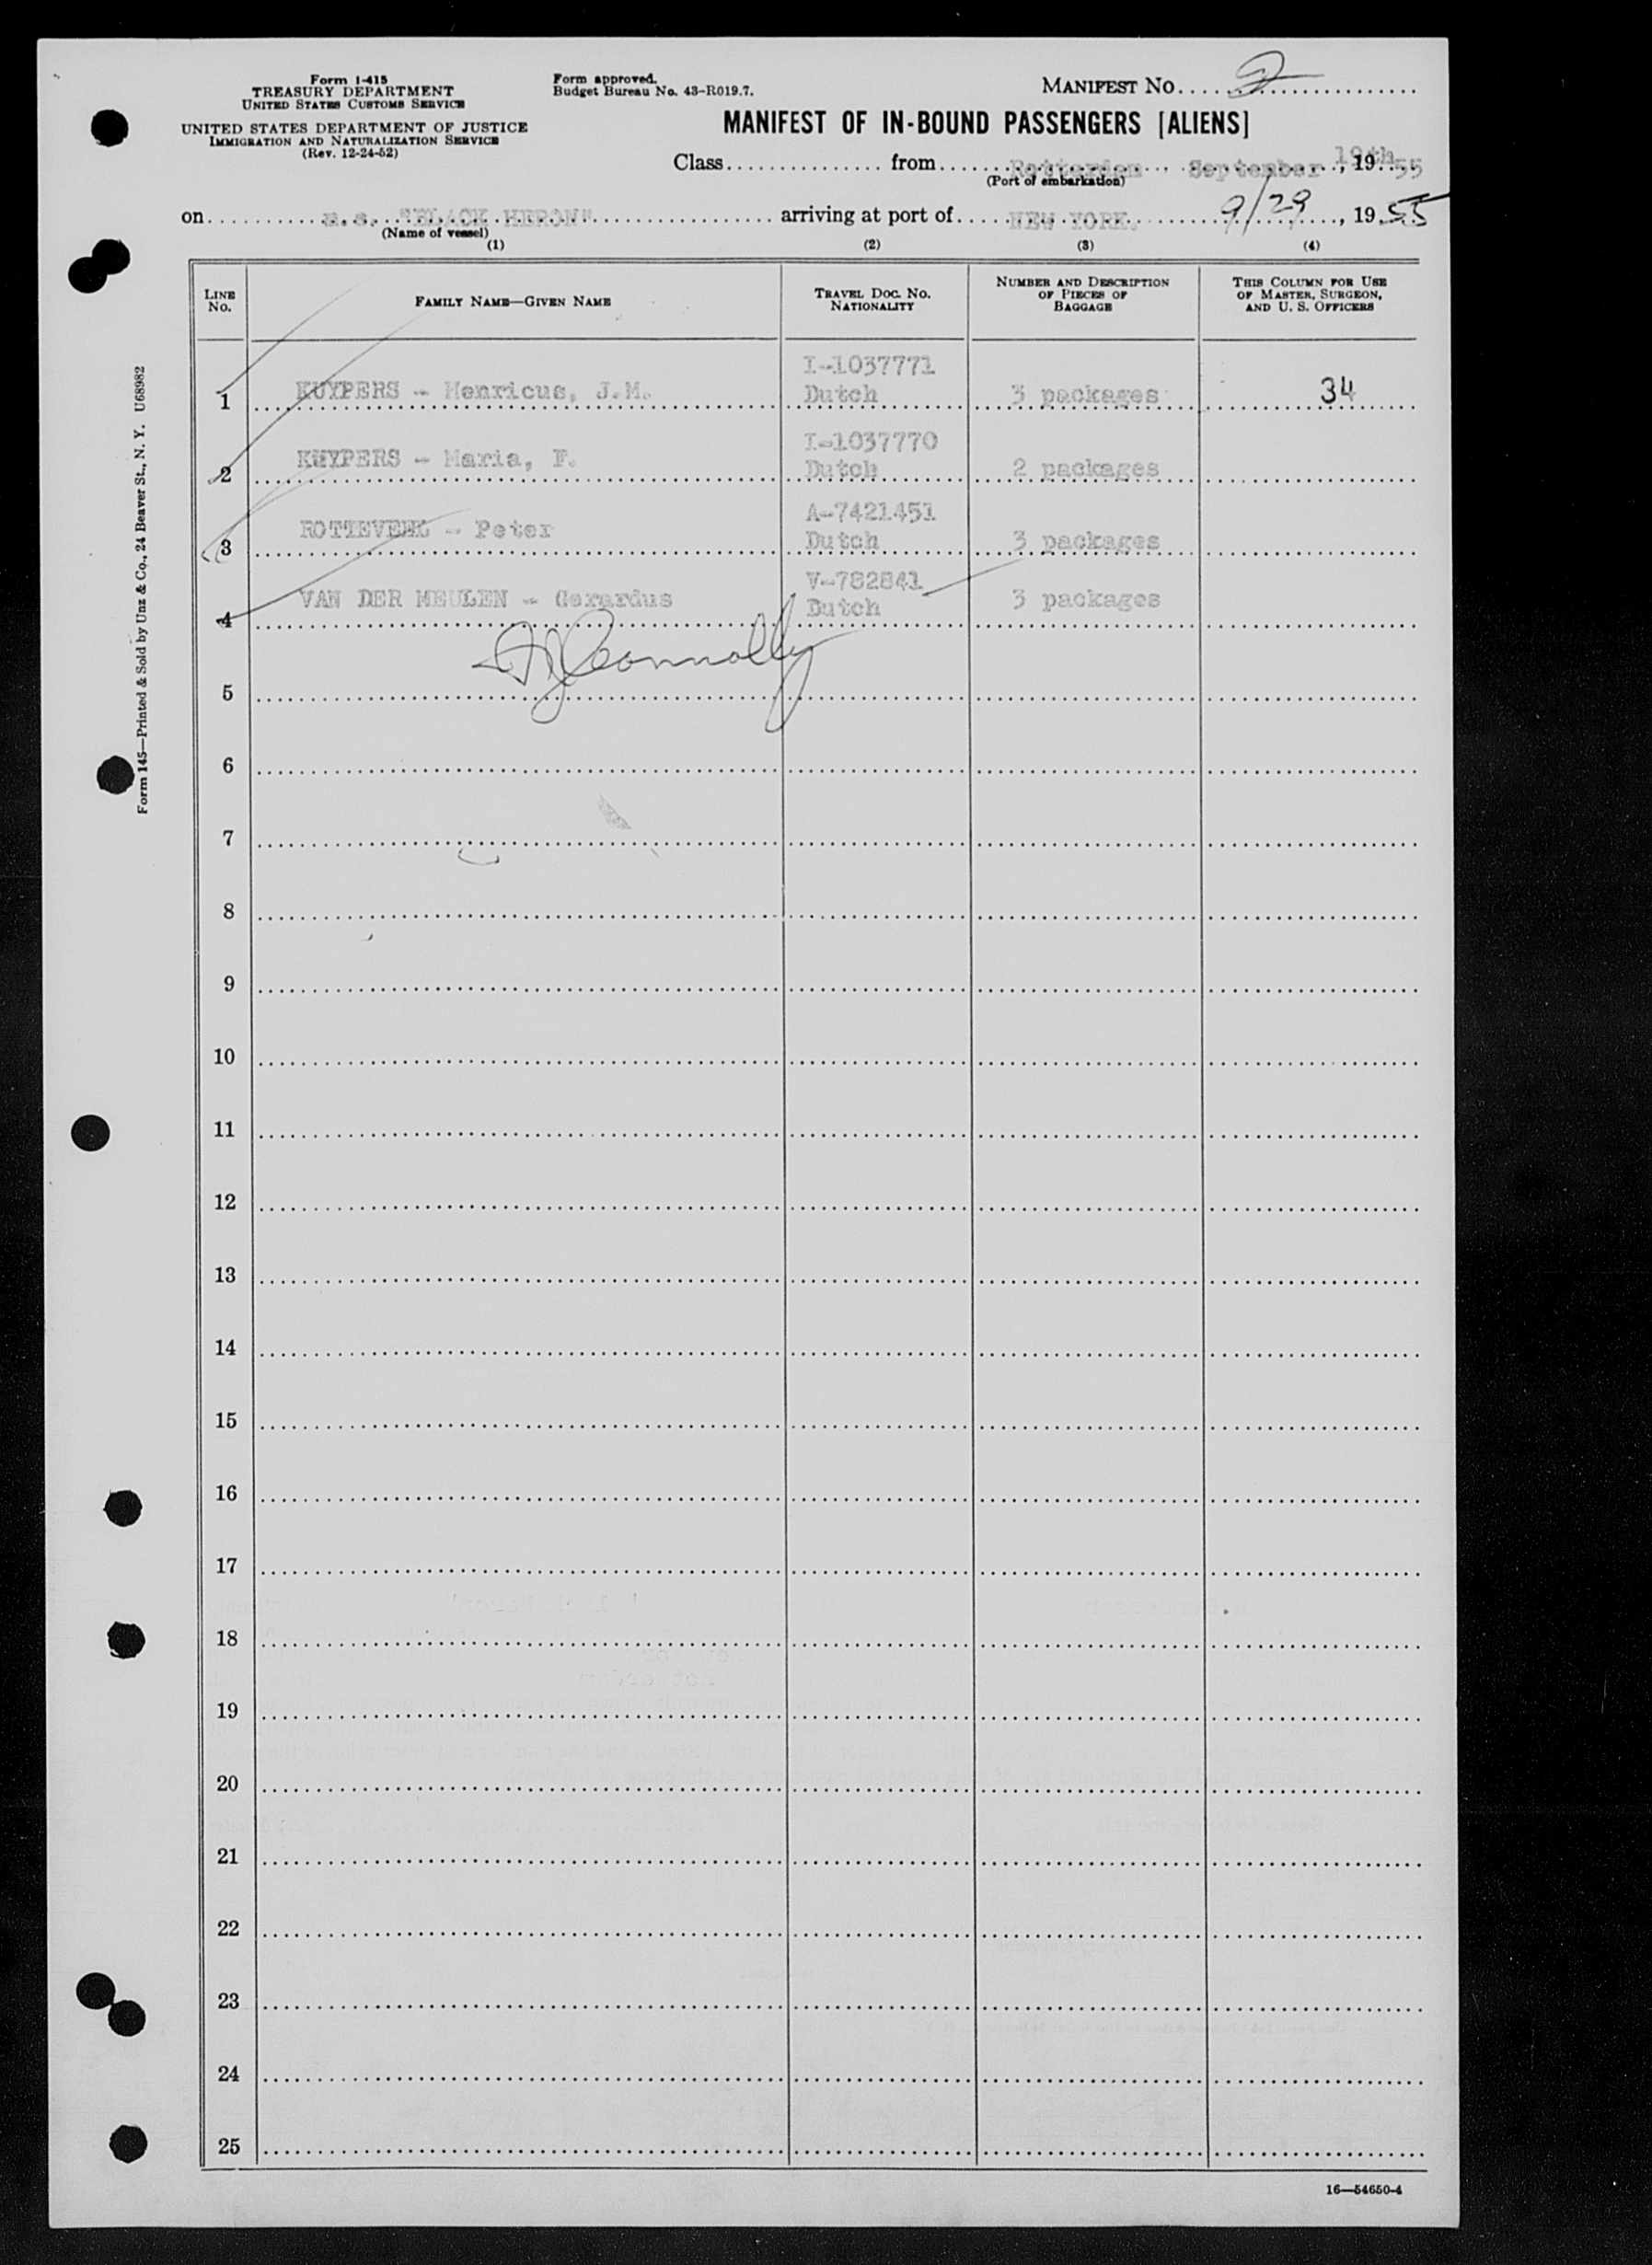 Form I-415
TREASURY DEPARTMENT
UNITED STATES CUSTOMS SERVICE
UNITED STATES DEPARTMENT OF JUSTICE
IMMIGRATION AND NATURALIZATION SERVICE
(Rev. 12-24-52)
Form approved.
Budget Bureau No. 43-R019.7.
MANIFEST NO. 2
MANIFEST OF IN-BOUND PASSENGERS [ALIENS]
Class from Rotterdam September 19th, 1955
(Port of embarkation)
on m.s. "BLACK HERON" arriving at port of NEW YORK. 9/29, 1955
(Name of vessel)
(1) (2) (3) (4)
LINE NO. FAMILY NAME—GIVEN NAME TRAVEL DOC. NO. NATIONALITY NUMBER AND DESCRIPTION OF PIECES OF BAGGAGE THIS COLUMN FOR USE OF MASTER, SURGEON, AND U. S. OFFICERS
I-1037771
1 KUYPERS - Henricus, J.M. Dutch 3 packages 34
I-1037770
2 KUYPERS - Maria, F. Dutch 2 packages
A-7421451
3 ROTTEVEEL - Peter Dutch 3 packages
V-782841
4 VAN DER MEULEN - Gerardus Dutch 3 packages
Connolly
5
6
7
8
9
10
11
12
13
14
15
16
17
18
19
20
21
22
23
24
25
16—54650-4
Form 145—Printed & Sold by Unz & Co., 24 Beaver St., N. Y. U68982